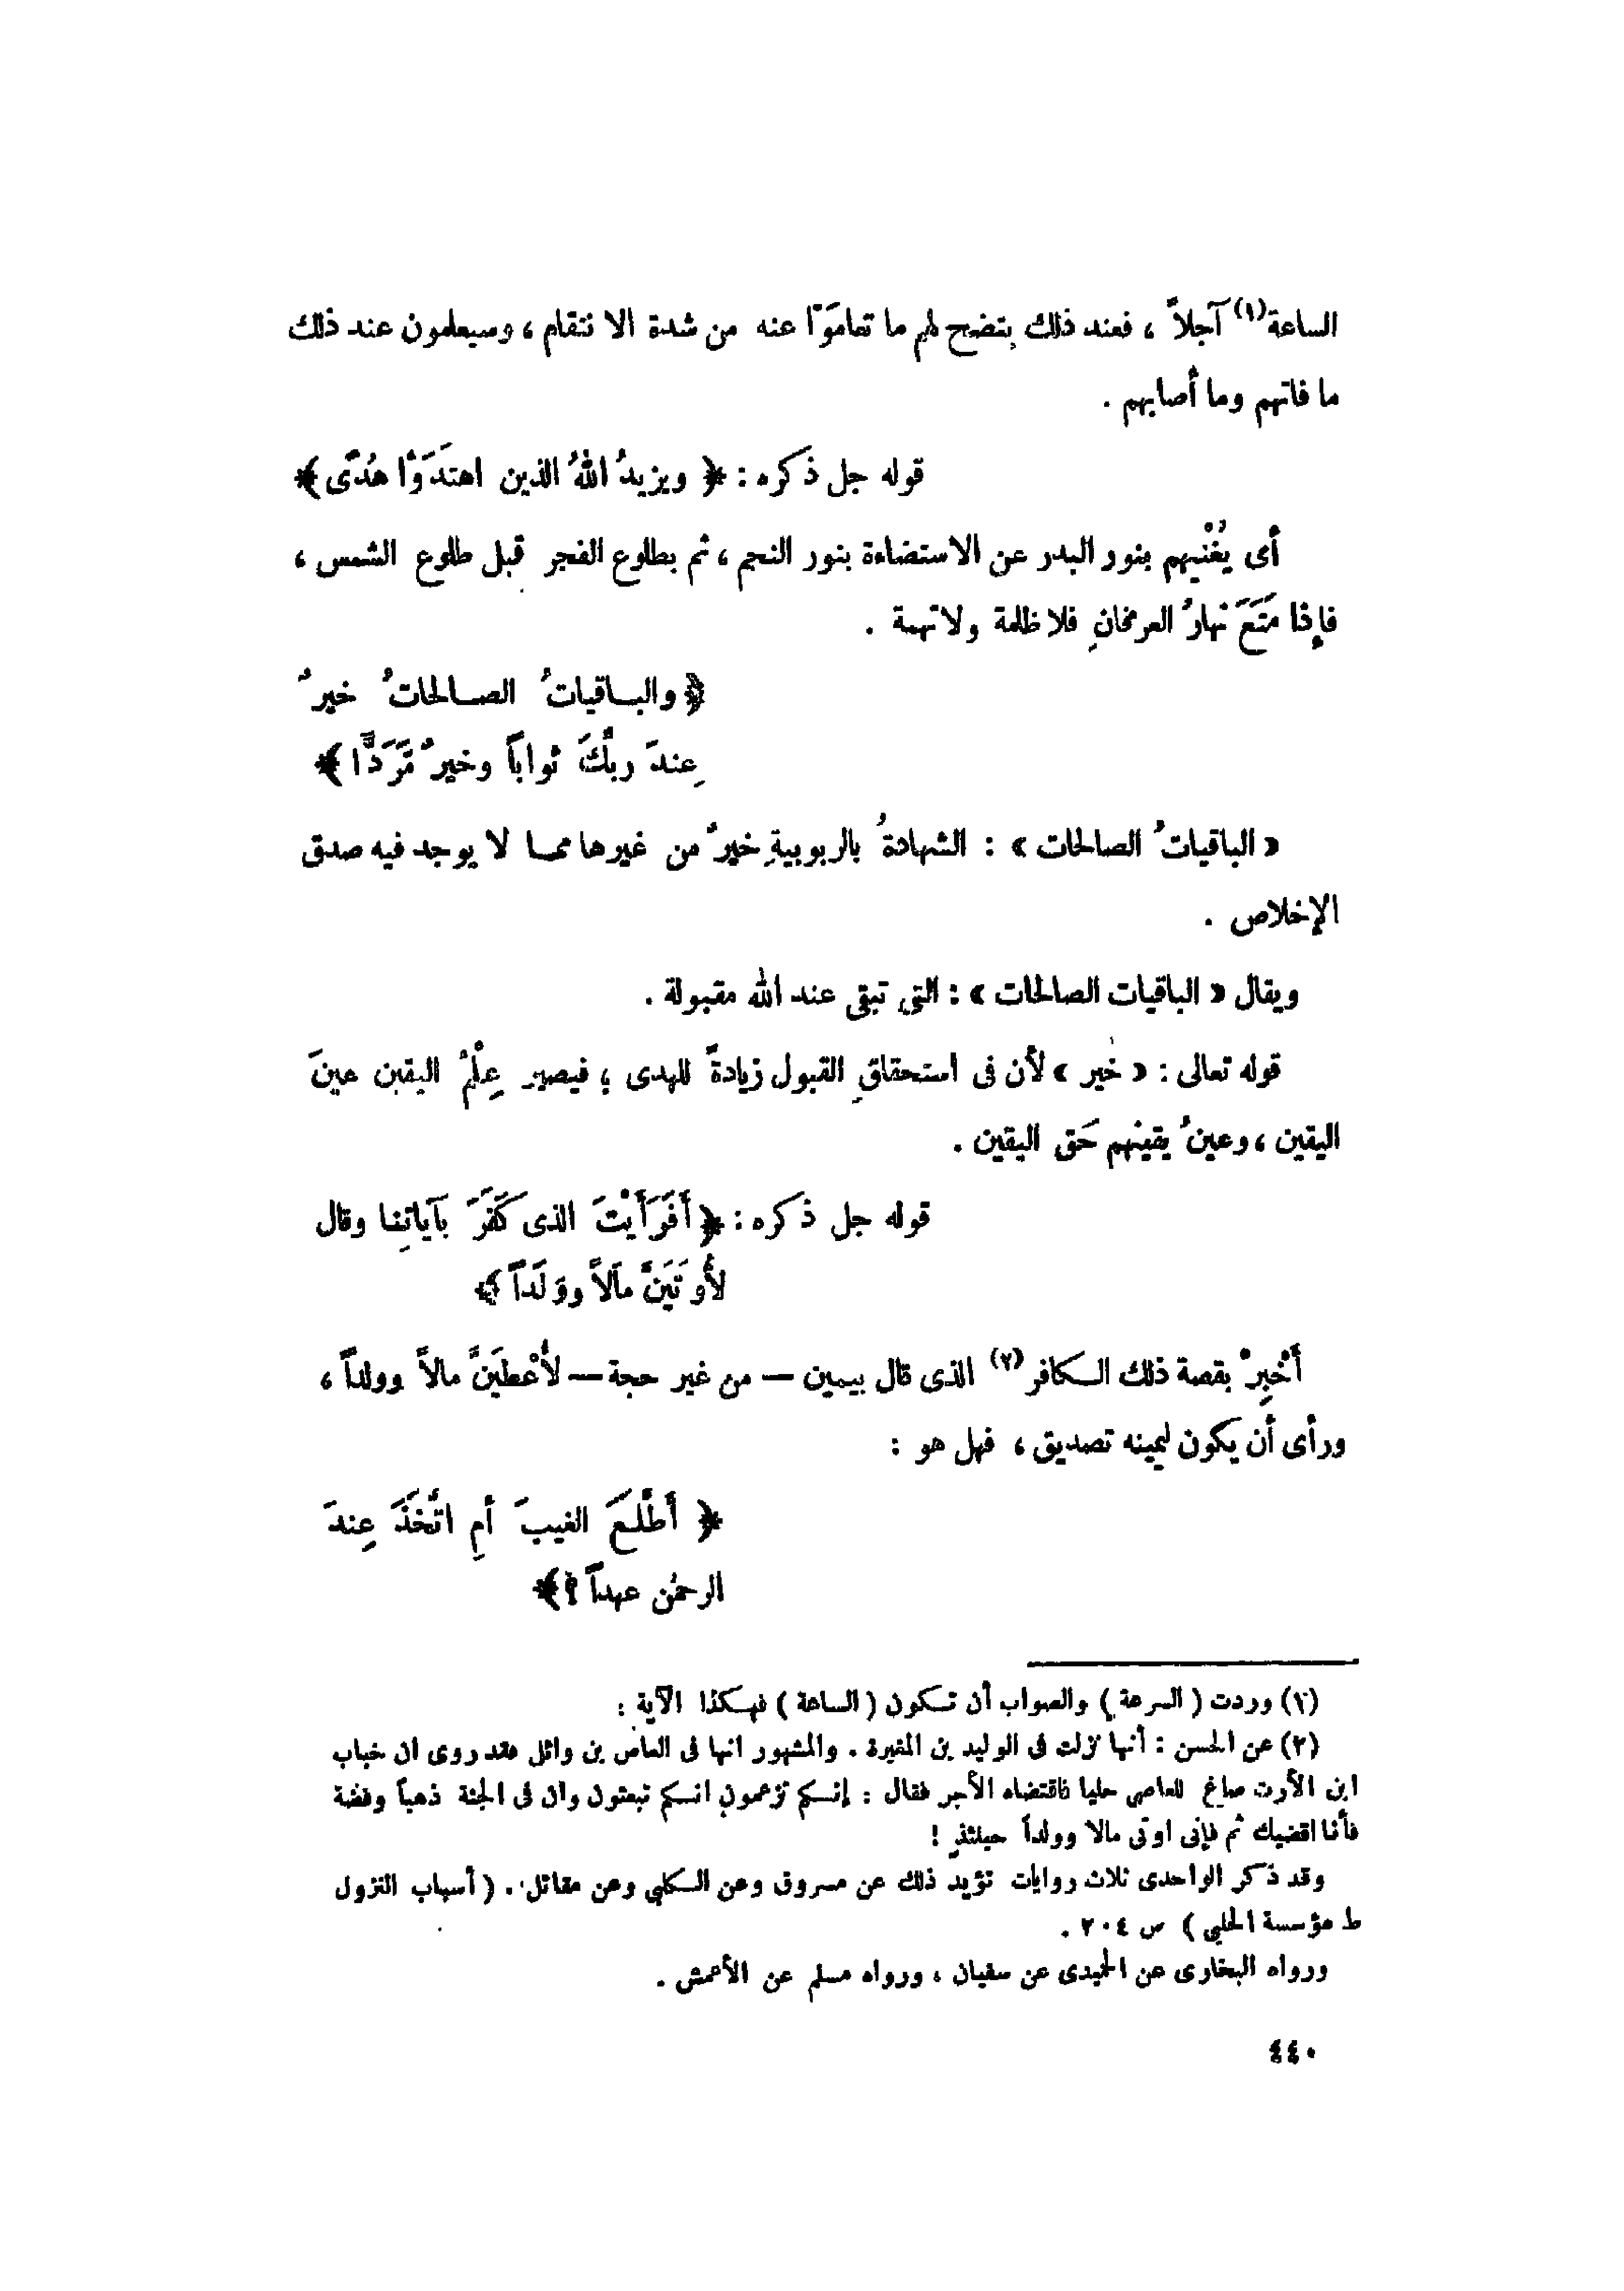 الساعة(١) آجلاً ، فعند ذلك يتضح لهم ما تعامَوْا عنه من شدة الانتقام ، وسيعلمون عند ذلك
ما فاتهم وما أصابهم .
قوله جل ذكره : ﴿ ويزيدُ اللهُ الذين اهتَدَوْا هُدًى ﴾
أى يُغْنيهم بنور البدر عن الاستضاءة بنور النجم ، ثم بطلوع الفجر قبل طلوع الشمس ،
فإذا مَتَعَ نهارُ العرفانِ فلا ظلمة ولا تهمة .
﴿ والباقياتُ الصالحاتُ خيرٌ
عِندَ ربِّكَ ثواباً وخيرٌ مَّرَدًّا ﴾
« الباقياتُ الصالحات » : الشهادةُ بالربوبيةِ خيرٌ من غيرها مما لا يوجد فيه صدق
الإخلاص .
ويقال « الباقيات الصالحات » : التى تبقى عند الله مقبولة .
قوله تعالى : « خير » لأن فى استحقاقِ القبول زيادةً للهدى ؛ فيصير عِلْمُ اليقين عينَ
اليقين ، وعينُ يقينهم حَق اليقين .
قوله جل ذكره : ﴿ أَفَرَأَيْتَ الذى كَفَرَ بآياتِنا وقال
لأُوتَيَنَّ مالاً ووَلَداً ﴾
أَخْبِرْ بقصة ذلك الكافر(٢) الذى قال بيمين — من غير حجة — لأُعْطَيَنَّ مالاً وولداً ،
ورأى أن يكون ليمينه تصديق ، فهل هو :
﴿ أَطَّلَعَ الغيبَ أمِ اتَّخَذَ عِندَ
الرحمٰن عهداً ؟ ﴾
(١) وردت ( السرعة ) والصواب أن تكون ( الساعة ) فهكذا الآية :
(٢) عن الحسن : أنها نزلت فى الوليد بن المغيرة . والمشهور انها فى العاص بن وائل فقد روى ان خباب
ابن الأرت صاغ للعاصى حليا فاقتضاه الأجر فقال : إنكم تزعمون انكم تبعثون وان فى الجنة ذهباً وفضة
فأنا اقضيك ثم فإنى اوتى مالا وولداً حينئذٍ !
وقد ذكر الواحدى ثلاث روايات تؤيد ذلك عن مسروق وعن الكلبى وعن مقاتل . ( أسباب النزول
ط مؤسسة الحلبى ) ص ٢٠٤ .
ورواه البخارى عن الحميدى عن سفيان ، ورواه مسلم عن الأعمش .
٤٤٠